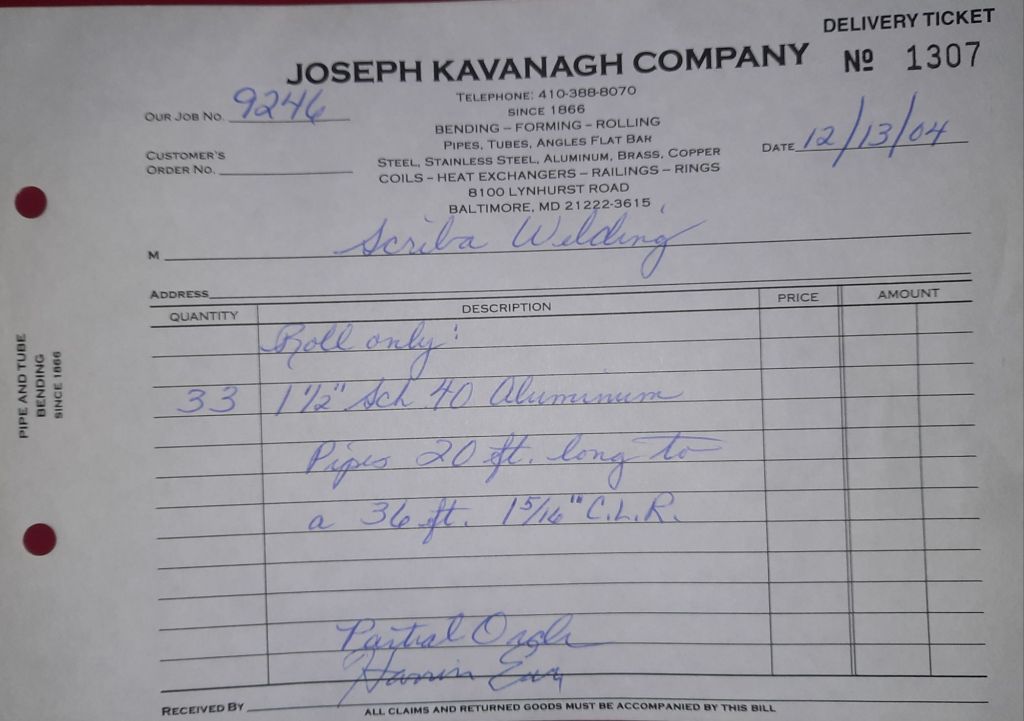 DELIVERY TICKET
JOSEPH KAVANAGH COMPANY
Nº 1307
TELEPHONE: 410-388-8070
OUR JOB NO. 9246
SINCE 1866
BENDING – FORMING – ROLLING
PIPES, TUBES, ANGLES FLAT BAR
DATE 12/13/04
CUSTOMER'S
ORDER NO.
STEEL, STAINLESS STEEL, ALUMINUM, BRASS, COPPER
COILS – HEAT EXCHANGERS – RAILINGS – RINGS
8100 LYNHURST ROAD
BALTIMORE, MD 21222-3615
M Scriba Welding
ADDRESS
QUANTITY DESCRIPTION PRICE AMOUNT
Roll only:
33 1 1/2" Sch 40 Aluminum
Pipes 20 ft. long to
a 36 ft. 1 5/16" C.L.R.
Partial Order
RECEIVED BY
ALL CLAIMS AND RETURNED GOODS MUST BE ACCOMPANIED BY THIS BILL
PIPE AND TUBE
BENDING
SINCE 1866